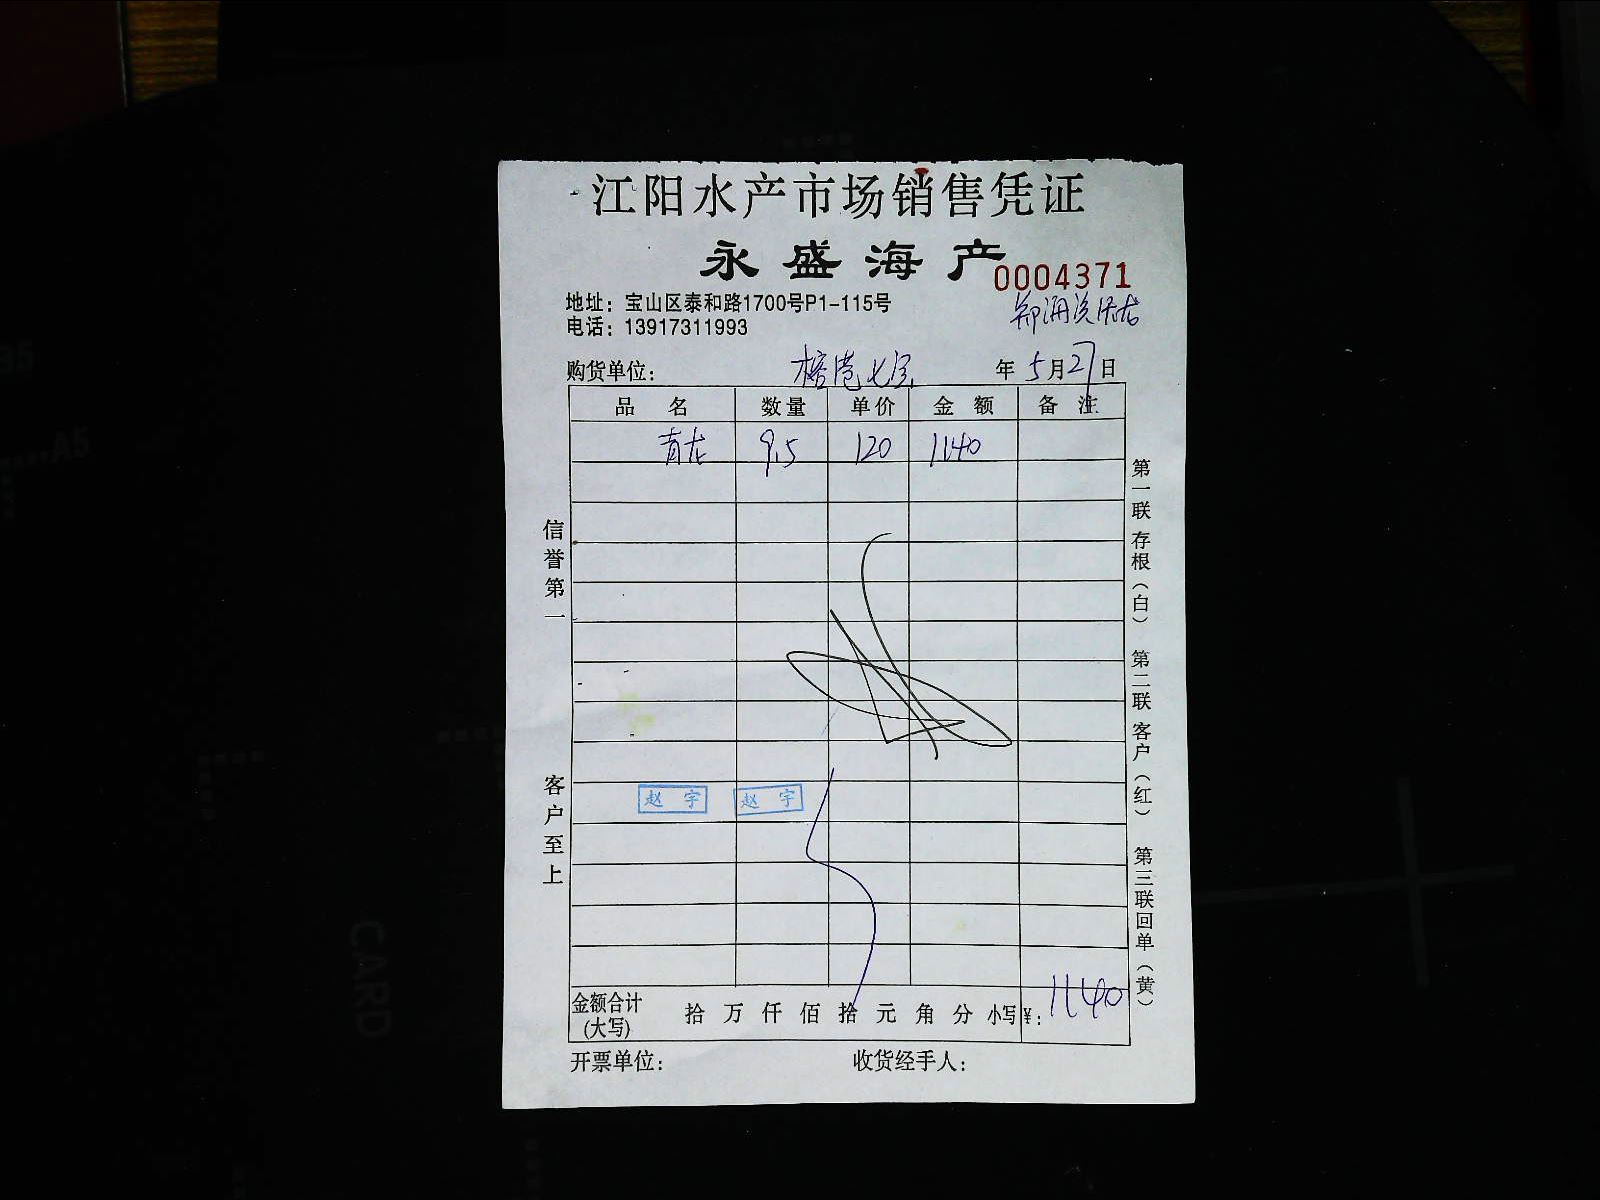 江阳水产市场销售凭证
永盛海产
0004371
地址：宝山区泰和路1700号P1-115号
电话：13917311993
购货单位： 榕港 年 5月27日
品 名 数量 单价 金 额 备 注
青龙 9.5 120 1140
信誉第一
客户至上
第一联 存根（白） 第二联 客户（红） 第三联 回单（黄）
赵 宇 赵 宇
金额合计(大写) 拾 万 仟 佰 拾 元 角 分 小写¥： 1140
开票单位： 收货经手人：
A5
CARD